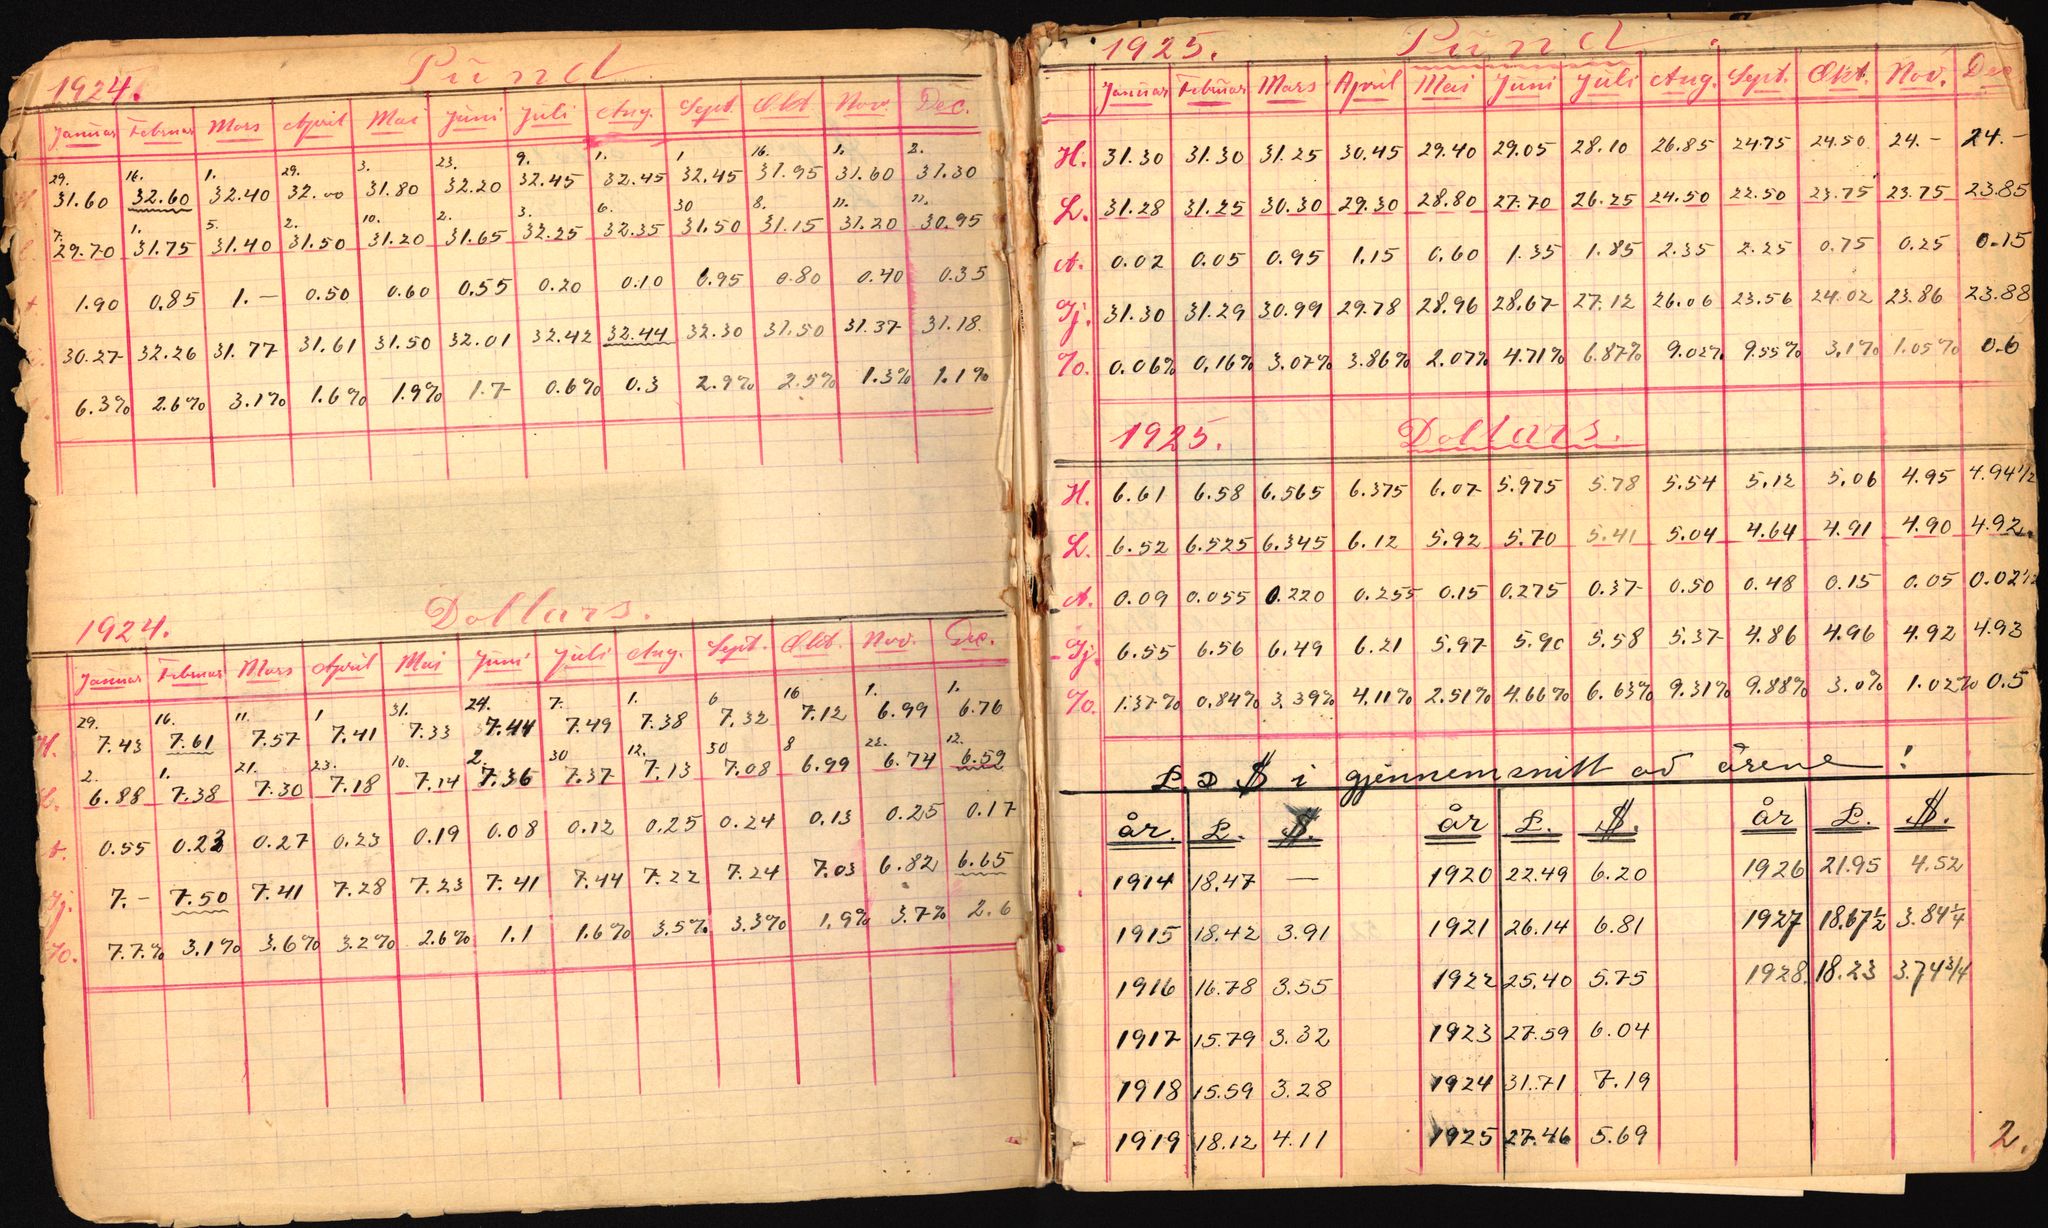 1924. Pund
Januar Februar Mars April Mai Juni Juli Aug. Sept. Okt. Nov. Dec.
29. 16. 1. 29. 3. 23. 9. 1. 1 16. 1. 2.
H. 31.60 32.60 32.40 32.00 31.80 32.20 32.45 32.45 32.45 31.95 31.60 31.30
7. 1. 5. 2. 10. 2. 3. 6. 30 8. 11. 11.
L. 29.70 31.75 31.40 31.50 31.20 31.65 32.25 32.35 31.50 31.15 31.20 30.95
1.90 0.85 1.— 0.50 0.60 0.55 0.20 0.10 0.95 0.80 0.40 0.35
30.27 32.26 31.77 31.61 31.50 32.01 32.42 32.44 32.30 31.50 31.37 31.18
6.3% 2.6% 3.1% 1.6% 1.9% 1.7 0.6% 0.3 2.9% 2.5% 1.3% 1.1%
1924. Dollars.
Januar Februar Mars April Mai Juni Juli Aug. Sept. Okt. Nov. Dec.
29. 16. 11. 1 31. 24. 7. 1. 6 16 1. 1.
H. 7.43 7.61 7.57 7.41 7.33 7.44 7.49 7.38 7.32 7.12 6.99 6.76
2. 1. 21. 23. 10. 2. 30 12. 30 8 22. 12.
L. 6.88 7.38 7.30 7.18 7.14 7.36 7.37 7.13 7.08 6.99 6.74 6.59
A. 0.55 0.23 0.27 0.23 0.19 0.08 0.12 0.25 0.24 0.13 0.25 0.17
Gj. 7.— 7.50 7.41 7.28 7.23 7.41 7.44 7.22 7.24 7.03 6.82 6.65
%. 7.7% 3.1% 3.6% 3.2% 2.6% 1.1 1.6% 3.5% 3.3% 1.9% 3.7% 2.6
1925. Pund.
Januar Februar Mars April Mai Juni Juli Aug. Sept. Okt. Nov. Dec
H. 31.30 31.30 31.25 30.45 29.40 29.05 28.10 26.85 24.75 24.50 24.— 24.—
L. 31.28 31.25 30.30 29.30 28.80 27.70 26.25 24.50 22.50 23.75 23.75 23.85
A. 0.02 0.05 0.95 1.15 0.60 1.35 1.85 2.35 2.25 0.75 0.25 0.15
Gj. 31.30 31.29 30.99 29.78 28.96 28.67 27.12 26.06 23.56 24.02 23.86 23.88
%. 0.06% 0.16% 3.07% 3.86% 2.07% 4.71% 6.87% 9.02% 9.55% 3.1% 1.05% 0.6
1925. Dollars.
H. 6.61 6.58 6.565 6.375 6.07 5.975 5.78 5.54 5.12 5.06 4.95 4.94 1/2
L. 6.52 6.525 6.345 6.12 5.92 5.70 5.41 5.04 4.64 4.91 4.90 4.92
A. 0.09 0.055 0.220 0.255 0.15 0.275 0.37 0.50 0.48 0.15 0.05 0.02 1/2
Gj. 6.55 6.56 6.49 6.21 5.97 5.90 5.58 5.37 4.86 4.96 4.92 4.93
%. 1.37% 0.84% 3.39% 4.11% 2.51% 4.66% 6.63% 9.31% 9.88% 3.0% 1.02% 0.5
£ $ i gjennemsnitt av årene!
år. £. $. år £. $. år £. $.
1914 18.47 — 1920 22.49 6.20 1926 21.95 4.52
1915 18.42 3.91 1921 26.14 6.81 1927 18.67 1/2 3.84 1/4
1916 16.78 3.55 1922 25.40 5.75 1928. 18.23 3.74 3/4
1917 15.79 3.32 1923 27.59 6.04
1918 15.59 3.28 1924 31.71 7.19
1919 18.12 4.11 1925 27.46 5.69
2.